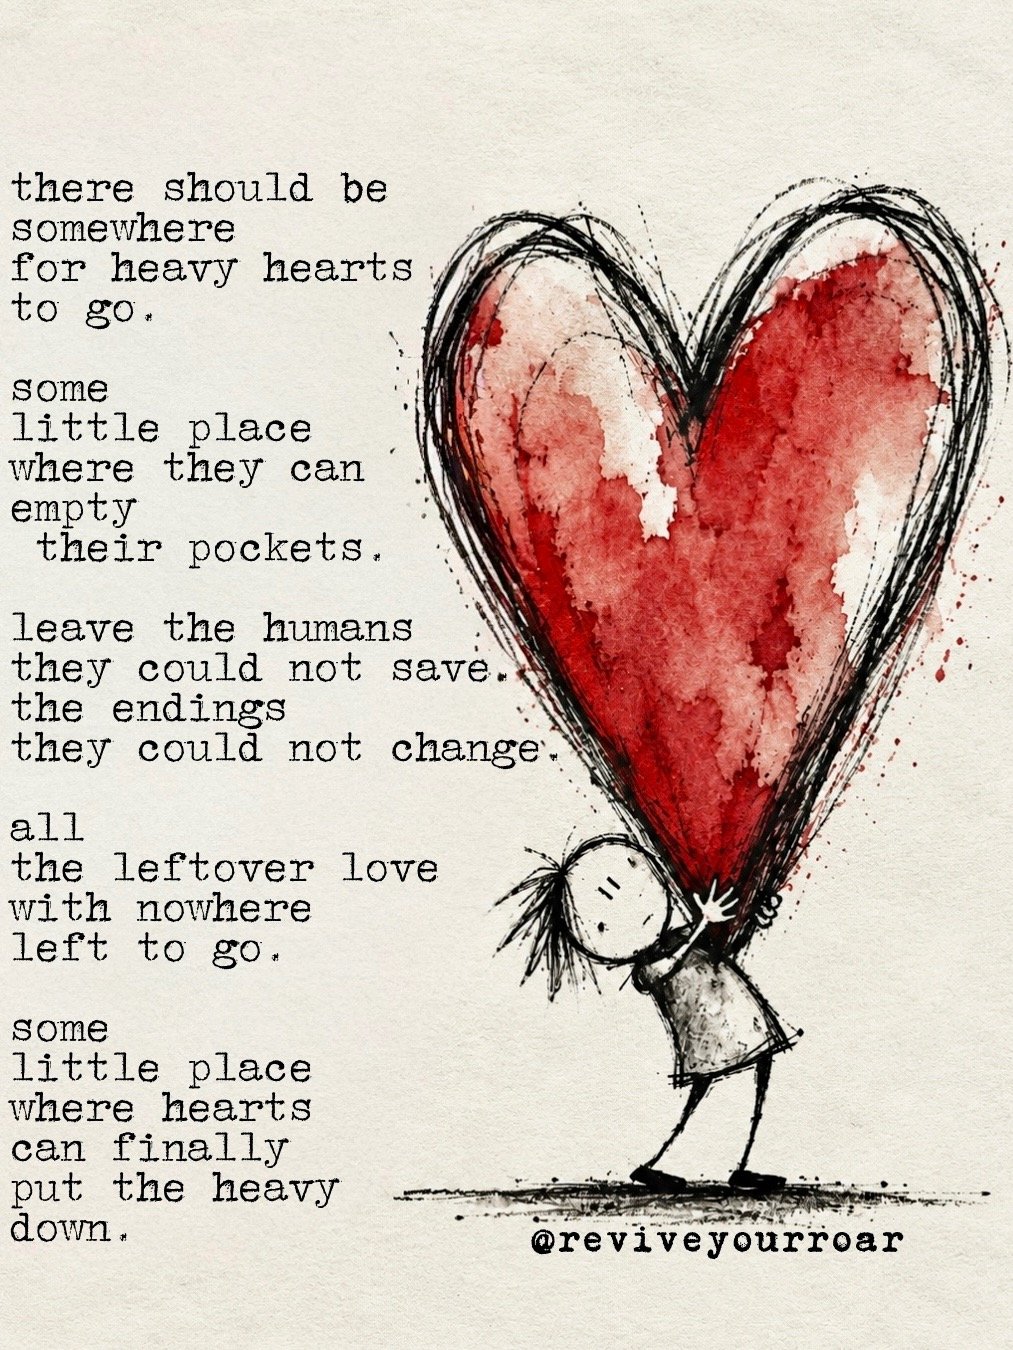 there should be
somewhere
for heavy hearts
to go.
some
little place
where they can
empty
their pockets.
leave the humans
they could not save.
the endings
they could not change.
all
the leftover love
with nowhere
left to go.
some
little place
where hearts
can finally
put the heavy
down.
@reviveyourroar